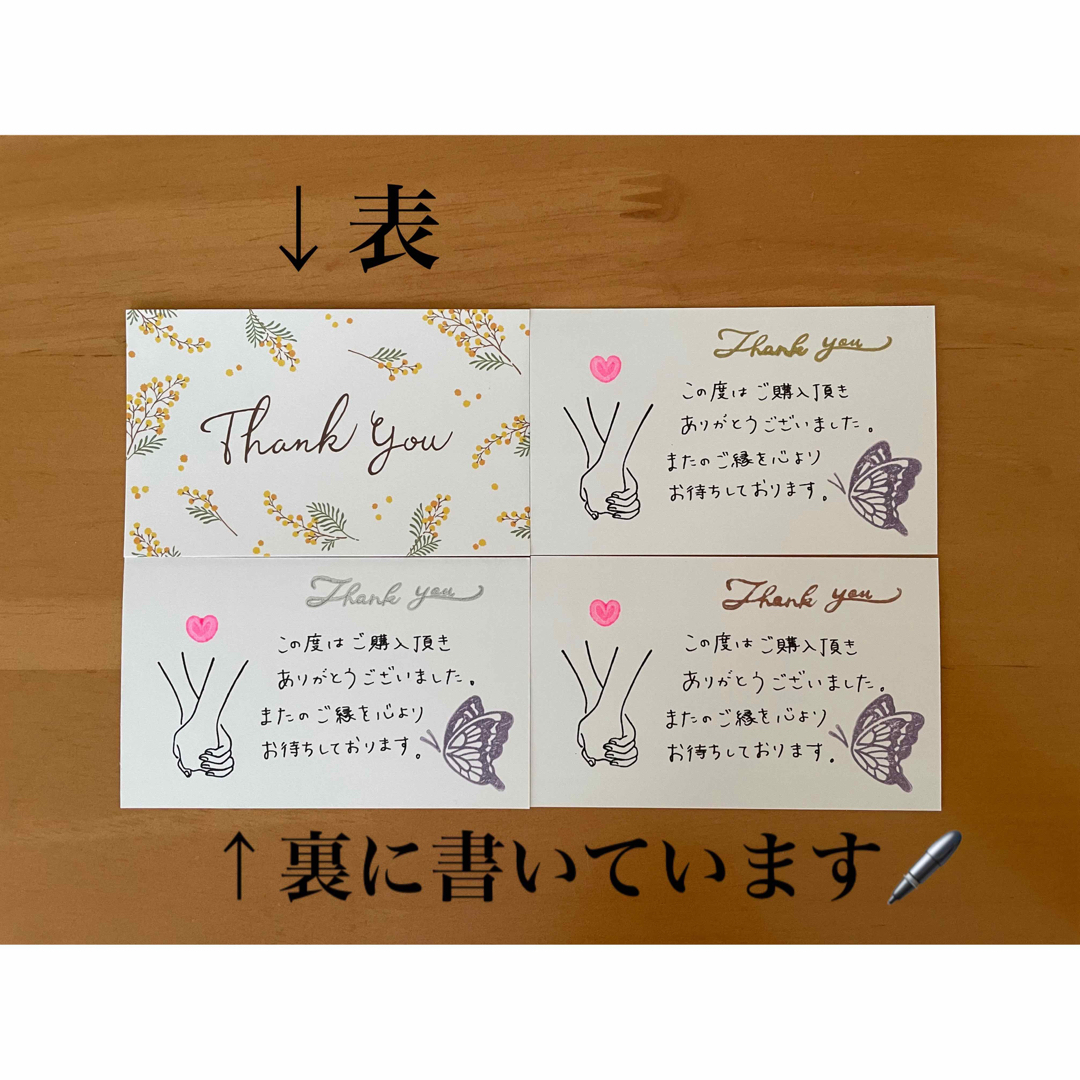 ↓表
Thank You
Thank you
この度はご購入頂き
ありがとうございました。
またのご縁を心より
お待ちしております。
Thank you
この度はご購入頂き
ありがとうございました。
またのご縁を心より
お待ちしております。
Thank you
この度はご購入頂き
ありがとうございました。
またのご縁を心より
お待ちしております。
↑裏に書いています🖊️